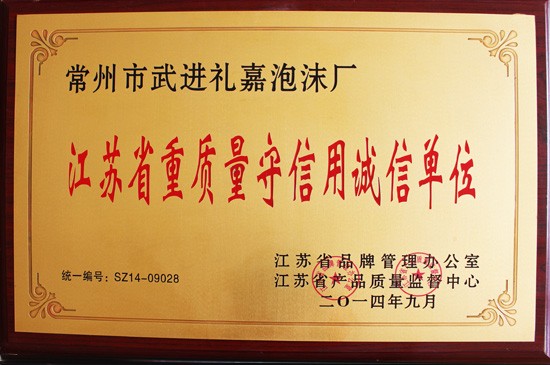 常州市武进礼嘉泡沫厂
江苏省重质量守信用诚信单位
江苏省品牌管理办公室
统一编号：SZ14-09028
江苏省产品质量监督中心
二〇一四年九月